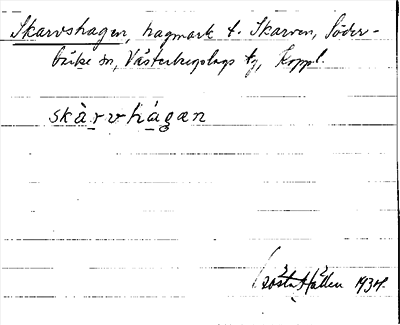 Skarvshagen, hagmark t. Skarven, Söder-
bärke sn, Västerbergslags tg, Koppl.
skàrvhágan
Gösta Hallen 1934.